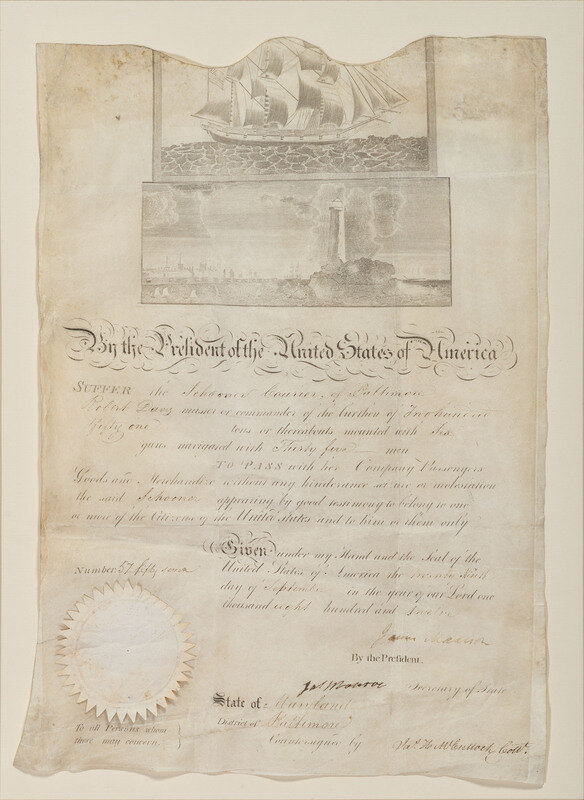 By the President of the United States of America
SUFFER the Schooner Courier of Baltimore
Robert Davis master or commander of the burthen of Two hundred
Fifty one tons or thereabouts mounted with Six
guns navigated with Thirty five men
TO PASS with her Company Passengers
Goods and Merchandize without any hinderance seizure or molestation
the said Schooner appearing by good testimony to belong to one
or more of the Citizens of the United States and to him or them only
Given under my Hand and the Seal of the
United States of America the twenty sixth
day of September in the year of our Lord one
thousand eight hundred and twelve
Number 57 fifty seven
James Madison
By the President.
Jas Monroe Secretary of State
State of Maryland
District of Baltimore
Countersigned by Jas. H. McCulloch Collr.
To all Persons whom
these may concern.